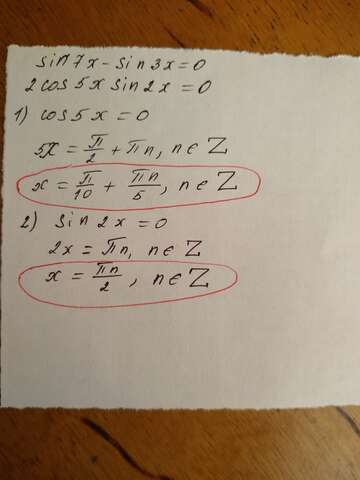 sin 7x - sin 3x = 0
2 cos 5x sin 2x = 0
1) cos 5x = 0
5x = π/2 + πn, n ∈ Z
x = π/10 + πn/5, n ∈ Z
2) sin 2x = 0
2x = πn, n ∈ Z
x = πn/2, n ∈ Z